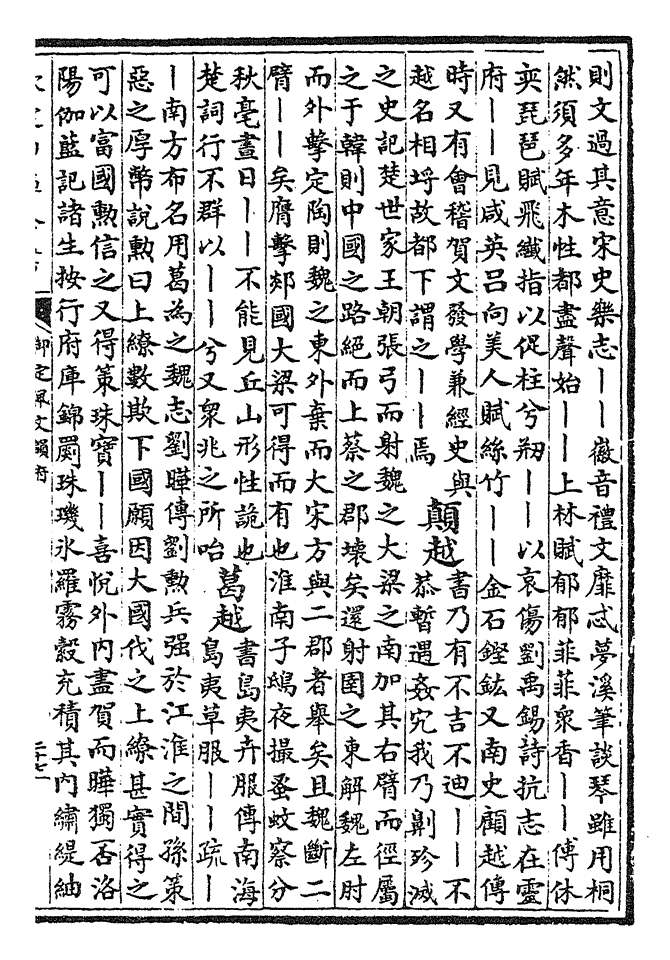 則文過其意宋史樂志——徽音禮文靡忒夢溪筆談琴雖用桐
然須多年木性都盡聲始——上林賦郁郁菲菲衆香——傅休
奕琵琶賦飛纖指以促柱兮刱——以哀傷劉禹錫詩抗志在靈
府——見咸英呂向美人賦絲竹——金石鏗鈜又南史顧越傳
時又有會稽賀文發學兼經史與
越名相埒故都下謂之——焉
顛越
書乃有不吉不迪——不
恭暫遇姦宄我乃劓殄滅
之史記楚世家王朝張弓而射魏之大梁之南加其右臂而徑屬
之于韓則中國之路絕而上蔡之郡壞矣還射圉之東解魏左肘
而外擊定陶則魏之東外棄而大宋方與二郡者舉矣且魏斷二
臂——矣膺擊郯國大梁可得而有也淮南子鴟夜撮蚤蚊察分
秋毫晝日——不能見丘山形性詭也
楚詞行不群以——兮又衆兆之所咍
葛越
書島夷卉服傳南海
島夷草服——疏—
—南方布名用葛為之魏志劉曄傳劉勲兵强於江淮之間孫策
惡之厚幣說勲曰上繚數欺下國願因大國伐之上繚甚實得之
可以富國勲信之又得策珠寶——喜悅外內盡賀而曄獨否洛
陽伽藍記諸生按行府庫錦罽珠璣氷羅霧縠充積其內繡緹紬
御定佩文韻府